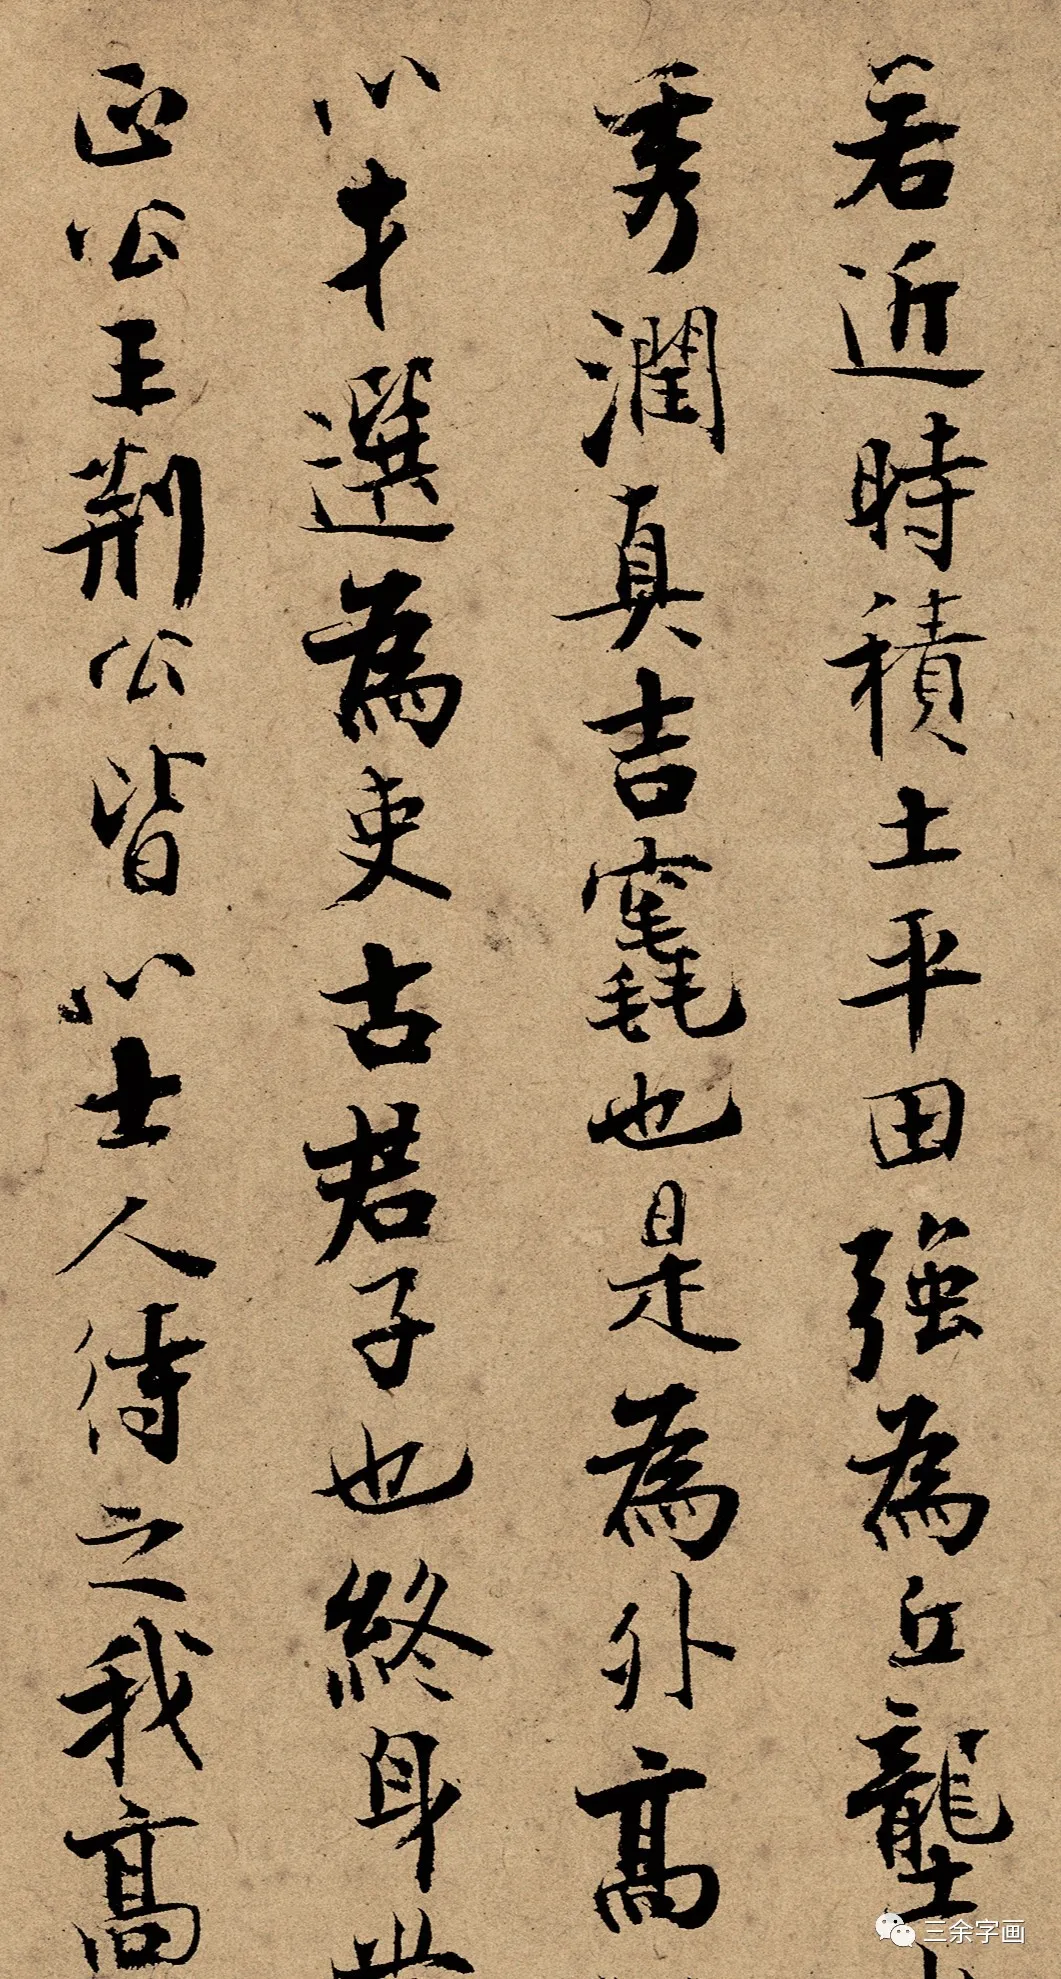 若近時積土平田強為丘壠
秀潤真吉竁也是為外高
以才選為吏古君子也終身
正公王荆公皆以士人待之我高
三余字画